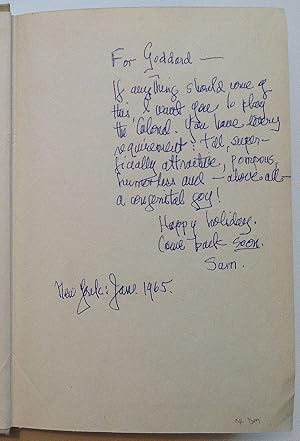 For Goddard —
If anything should come of
this, I want you to play
the Colonel. You have every
requirement: tall, super-
ficially attractive, pompous,
humorless and — above all —
a congenital goy!
Happy holiday.
Come back soon.
Sam.
New York: June 1965.